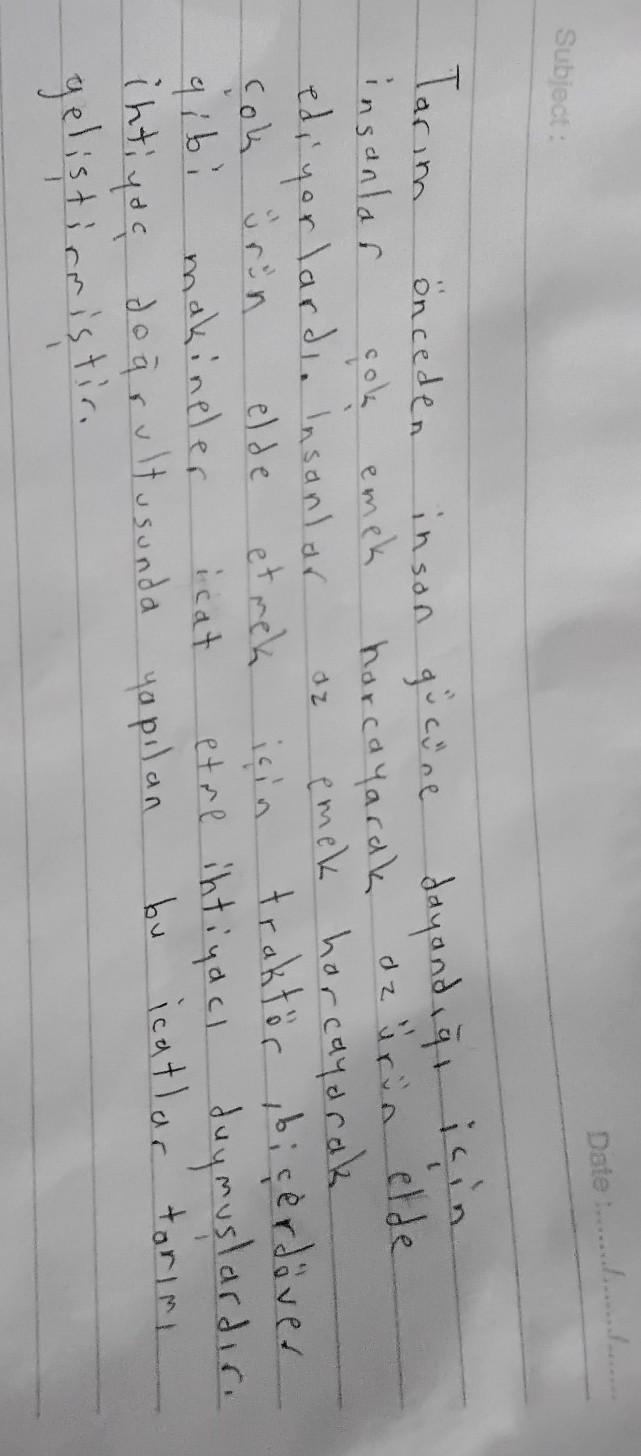 Subject:
Date:....../....../......
Tarım önceden insan gücüne dayandığı için
insanlar çok emek harcayarak az ürün elde
ediyorlardı. İnsanlar az emek harcayarak
çok ürün elde etmek için traktör, biçerdöver
gibi makineler icat etme ihtiyacı duymuşlardır.
ihtiyaç doğrultusunda yapılan bu icatlar tarımı
geliştirmiştir.